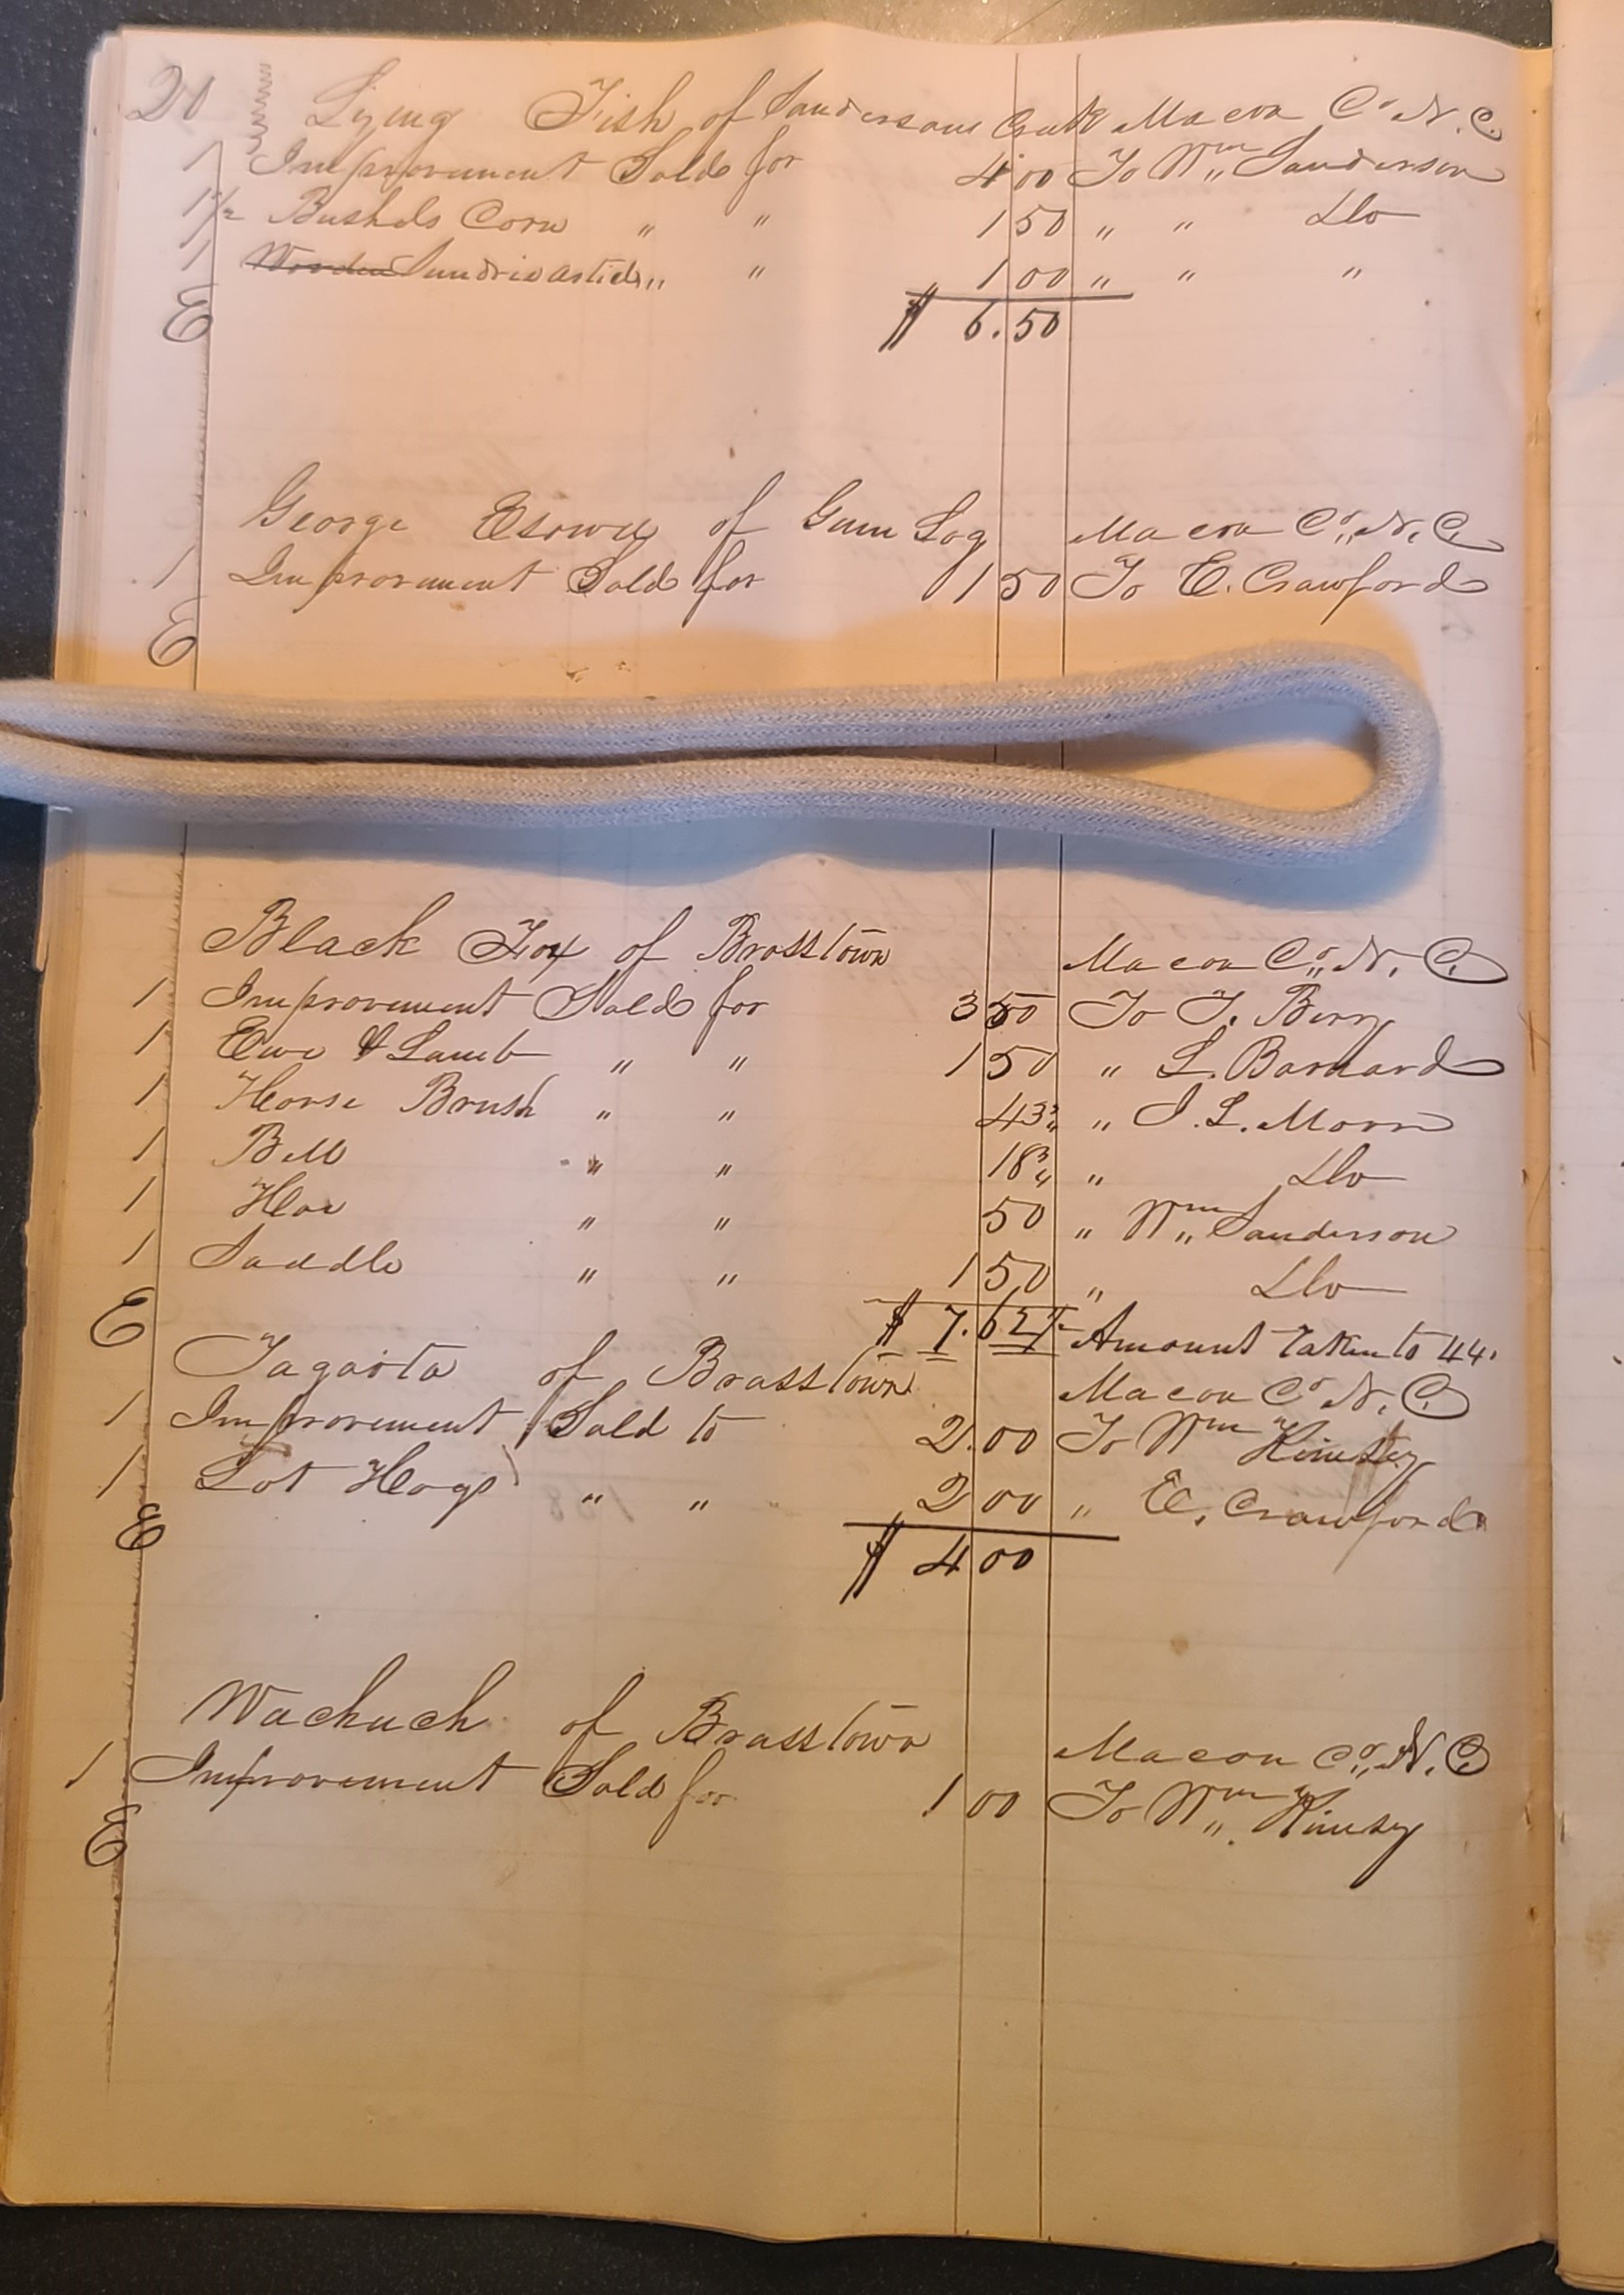 20 Lying Fish of Sandersons Creek Macon Co. N.C.
1 Improvement Sold for 4 00 To Wm Sanderson
1 1/2 Bushels Corn " " 1 50 " " Do
1 Wooden Sundries " " 1 00 " " "
E $ 6.50
George of Gum Log Macon Co. N.C.
1 Improvement Sold for 1 50 To E. Crawford
E
Black Fox of Brasstown Macon Co. N.C.
1 Improvement Sold for 3 50 To T. Berry
1 Ewe & Lamb " " 1 50 " L. Barnard
1 Horse Brush " " 43 3/4 " J. L. Moore
1 Bell " " 18 3/4 " Do
1 Hoe " " 50 " Wm Sanderson
1 Saddle " " 1 50 " Do
E $ 7.62 1/2 Amount Taken to 44.
of Brasstown Macon Co. N.C.
1 Improvement Sold to 2.00 To Wm Kimsey
1 Lot Hogs " " 2 00 " E. Crawford
E $ 4 00
Wachuch of Brasstown Macon Co. N.C.
1 Improvement Sold for 1 00 To Wm Kimsey
E